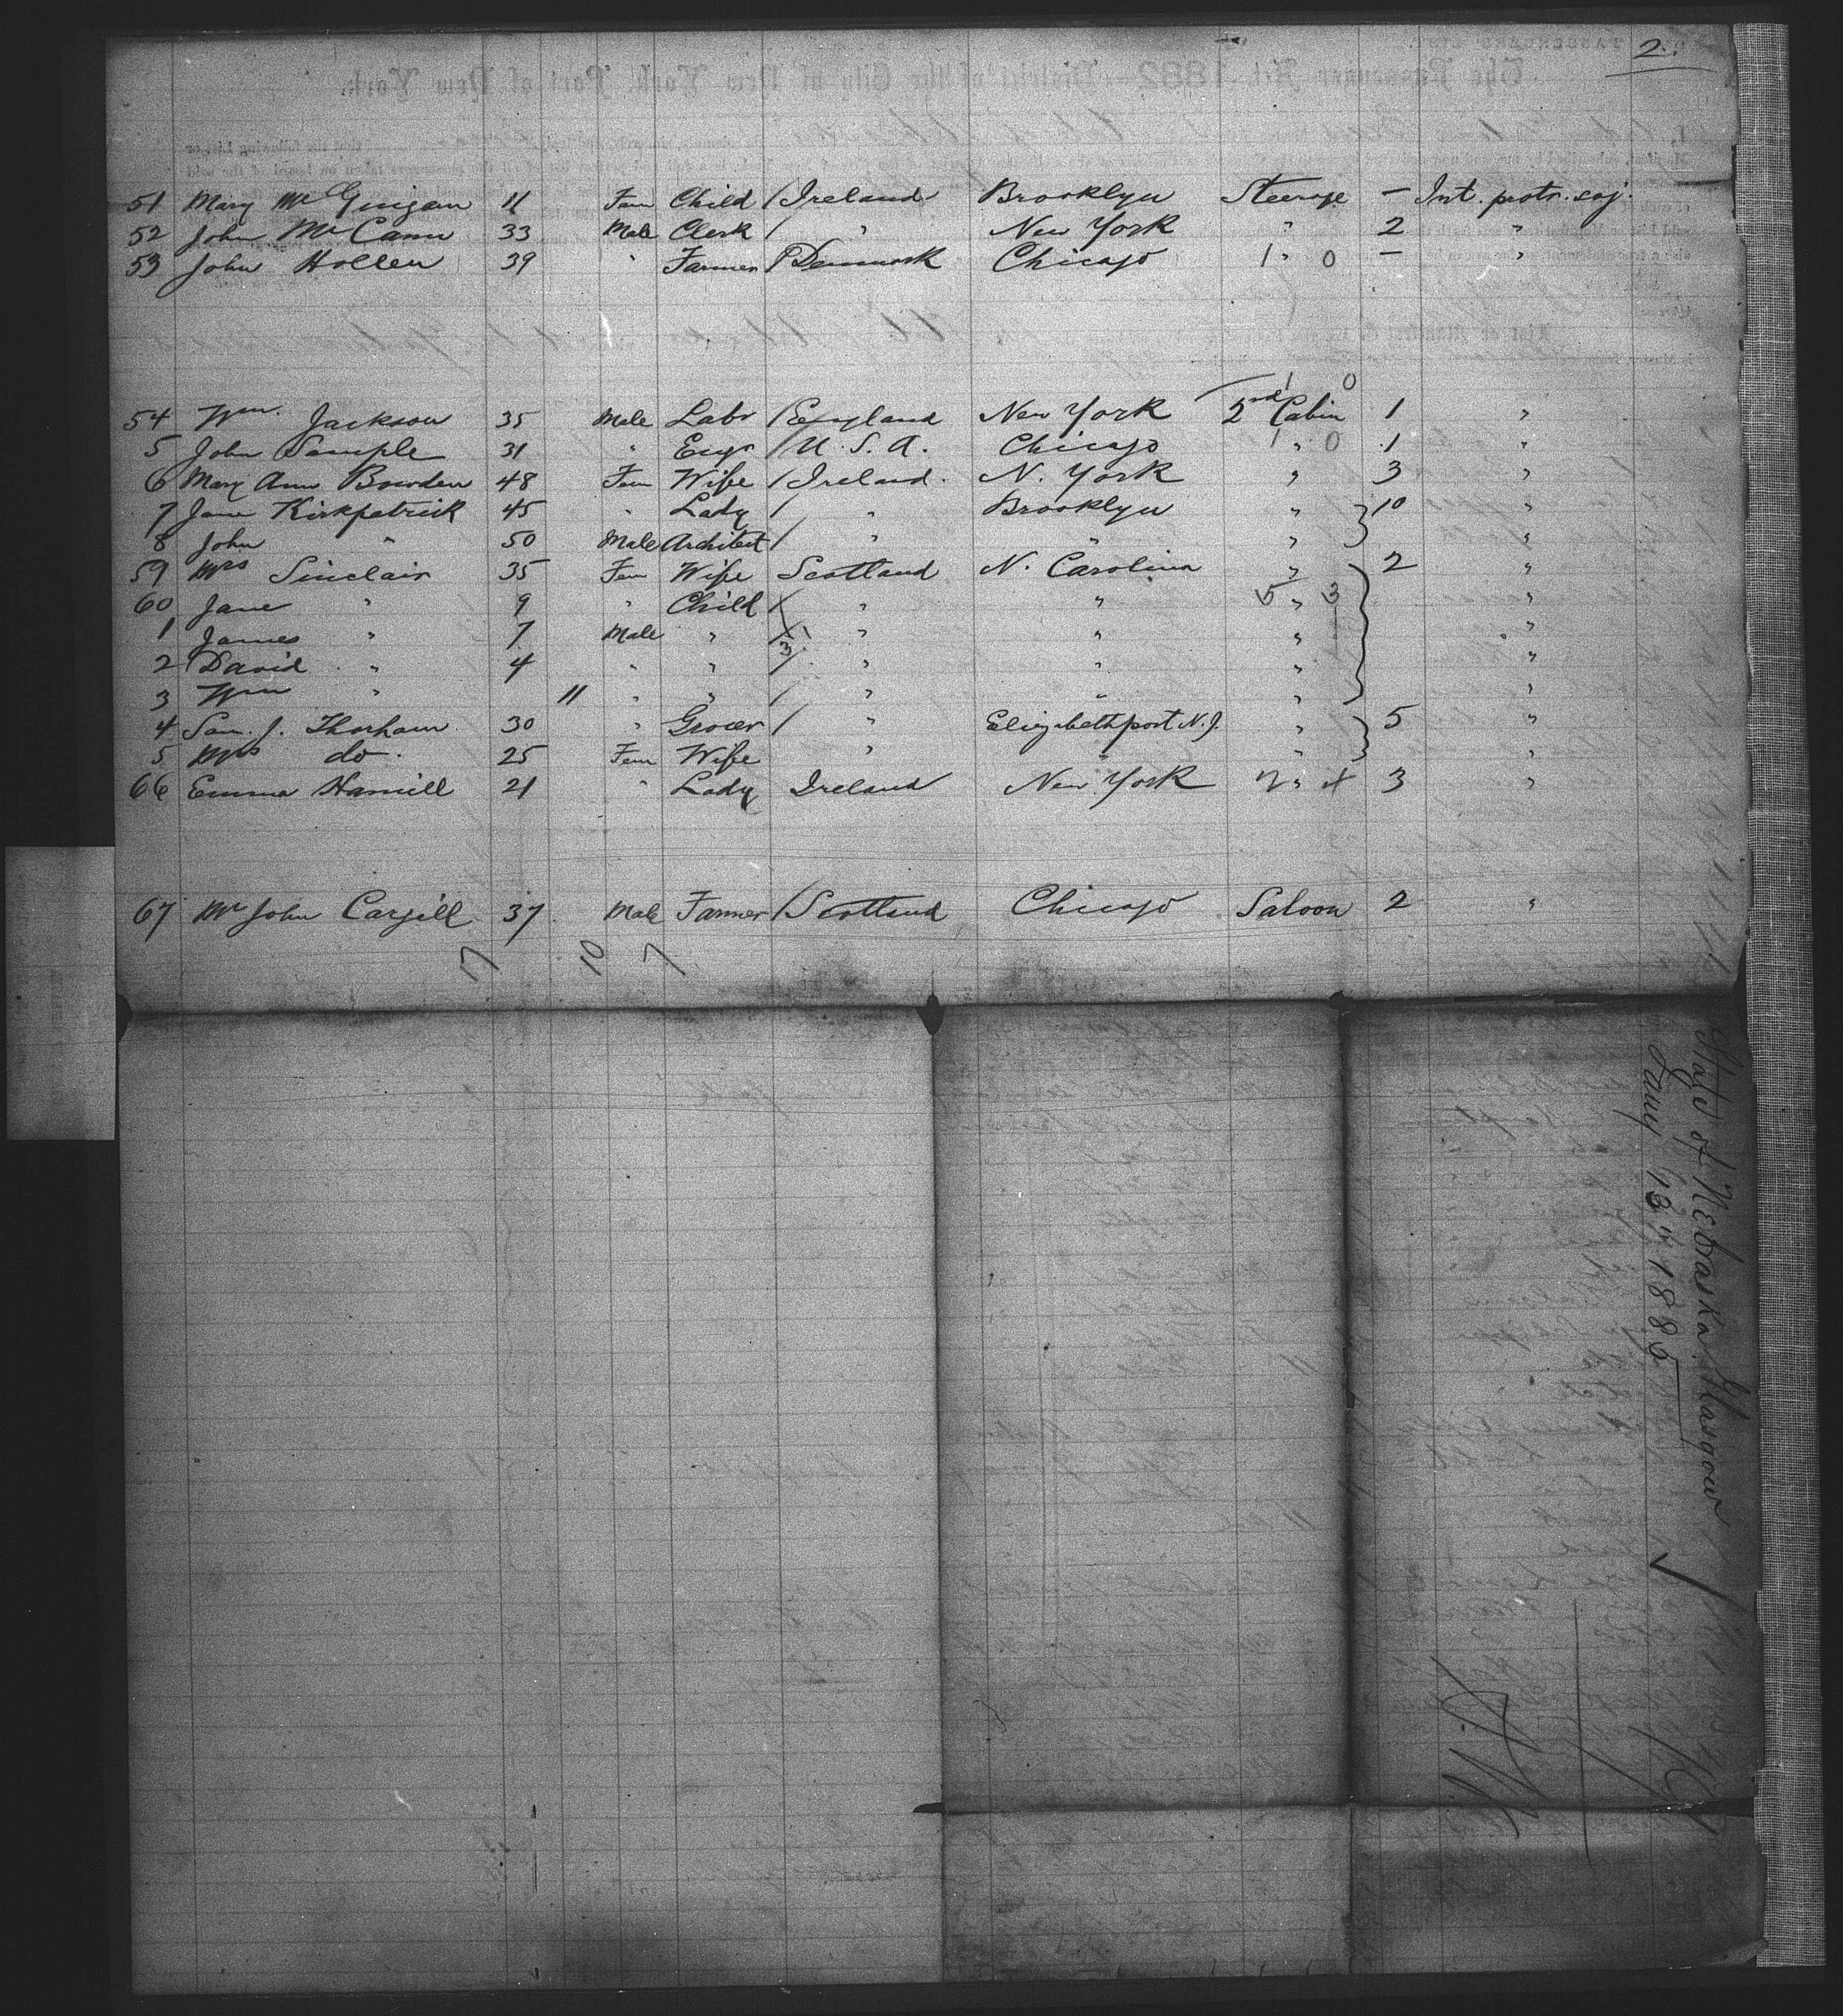 2.
51 Mary McGuigan 11 Fem Child / Ireland Brooklyn Steerage — Int. protr. soj.
52 John McCann 33 Male Clerk / " New York " 2 "
53 John Hollen 39 " Farmer / Denmark Chicago 1 " 0 — "
1 0
54 Wm. Jackson 35 Male Labr / England New York 2nd Cabin 1 "
5 John Sample 31 " Engr / U. S. A. Chicago 1 " 0 1 "
6 Mary Ann Bowden 48 Fem Wife / Ireland. N. York " 3 "
7 Jane Kirkpatrick 45 " Lady / " Brooklyn " } 10 "
8 John " 50 Male Architect / " " " "
59 Mrs Sinclair 35 Fem Wife Scotland N. Carolina " } 2 "
60 Jane " 9 " Child / " " 5 " 3 "
1 James " 7 Male " / " " " "
3
2 David " 4 " " / " " " "
3 Wm " 11 " " / " " " "
4 Sam. J. 30 " Grocer / " Elizabethport N.J. " } 5 "
5 Mrs do. 25 Fem Wife " " " "
66 Emma Hamill 21 " Lady Ireland New York " 3 "
67 Mr John Cargill 37 Male Farmer / Scotland Chicago Saloon 2 "
10 7
State of Nebraska Glasgow
Jany 13th 1885